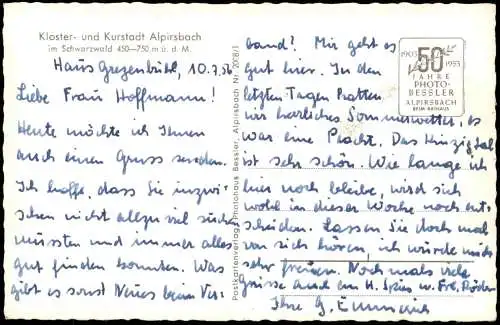 Kloster- und Kurstadt Alpirsbach
im Schwarzwald 450—750 m ü. d. M.
Haus Grezenbühl, 10.7.56
Liebe Frau Hoffmann!
Heute möchte ich Ihnen
auch einen Gruss senden.
Ich hoffe, dass Sie inzwi-
schen nicht allzu viel suchen
mussten und immer alles
gut finden konnten. Was
gibt es sonst Neues beim Ver-
band? Mir geht es
gut hier. In den
letzten Tagen hatten
wir herrliches Sommerwetter, es
war eine Pracht. Das Kinzigtal
ist sehr schön. Wie lange ich
hier noch bleibe, wird sich
wohl in dieser Woche noch ent-
scheiden. Lassen Sie doch mal
von sich hören, ich würde mich
sehr freuen. Nochmals viele
Grüsse auch an H. Spies u. Frl. Röder
Ihre G.
Postkartenverlag Photohaus Bessler, Alpirsbach Nr. 2078/1
1903 50 1953
JAHRE
PHOTO-
BESSLER
ALPIRSBACH
BEIM RATHAUS